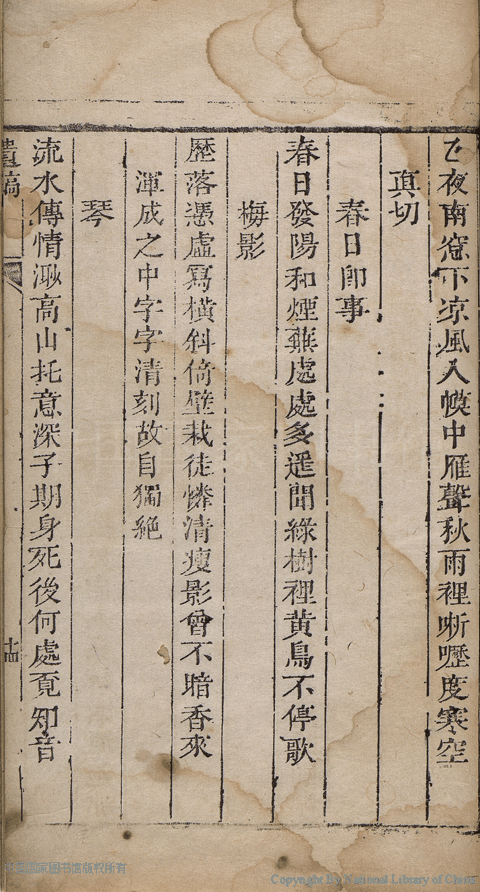 乙夜南窓下凉風入幙中雁聲秋雨裡哳嚦度寒空
真切
春日卽事
春日發陽和煙蕪處處多遥聞綠樹裡黄鳥不停歌
梅影
歷落憑虛寫橫斜倚壁栽徒憐清瘦影曾不暗香來
渾成之中字字清刻故自獨絶
琴
流水傳情渺高山托意深子期身死後何處覓知音
遺稿
十四
国家图书馆版权所有
Copyright By National Library of China